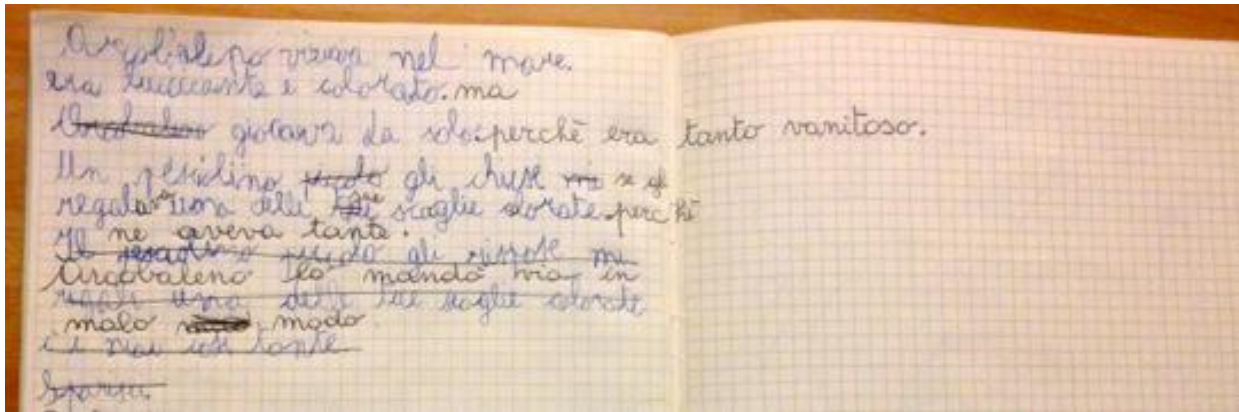 Arcobaleno viveva nel mare.
era luccicante e colorato. ma
giocava da solo perchè era tanto vanitoso.
Un pesciolino piccolo gli chiese se gli
regalava una delle sue scaglie colorate perchè
ne aveva tante.
Il pesciolino piccolo gli rispose mi
Arcobaleno lo mandò via in
regali una delle tue scaglie colorate
malo modo
tante
Sparisci